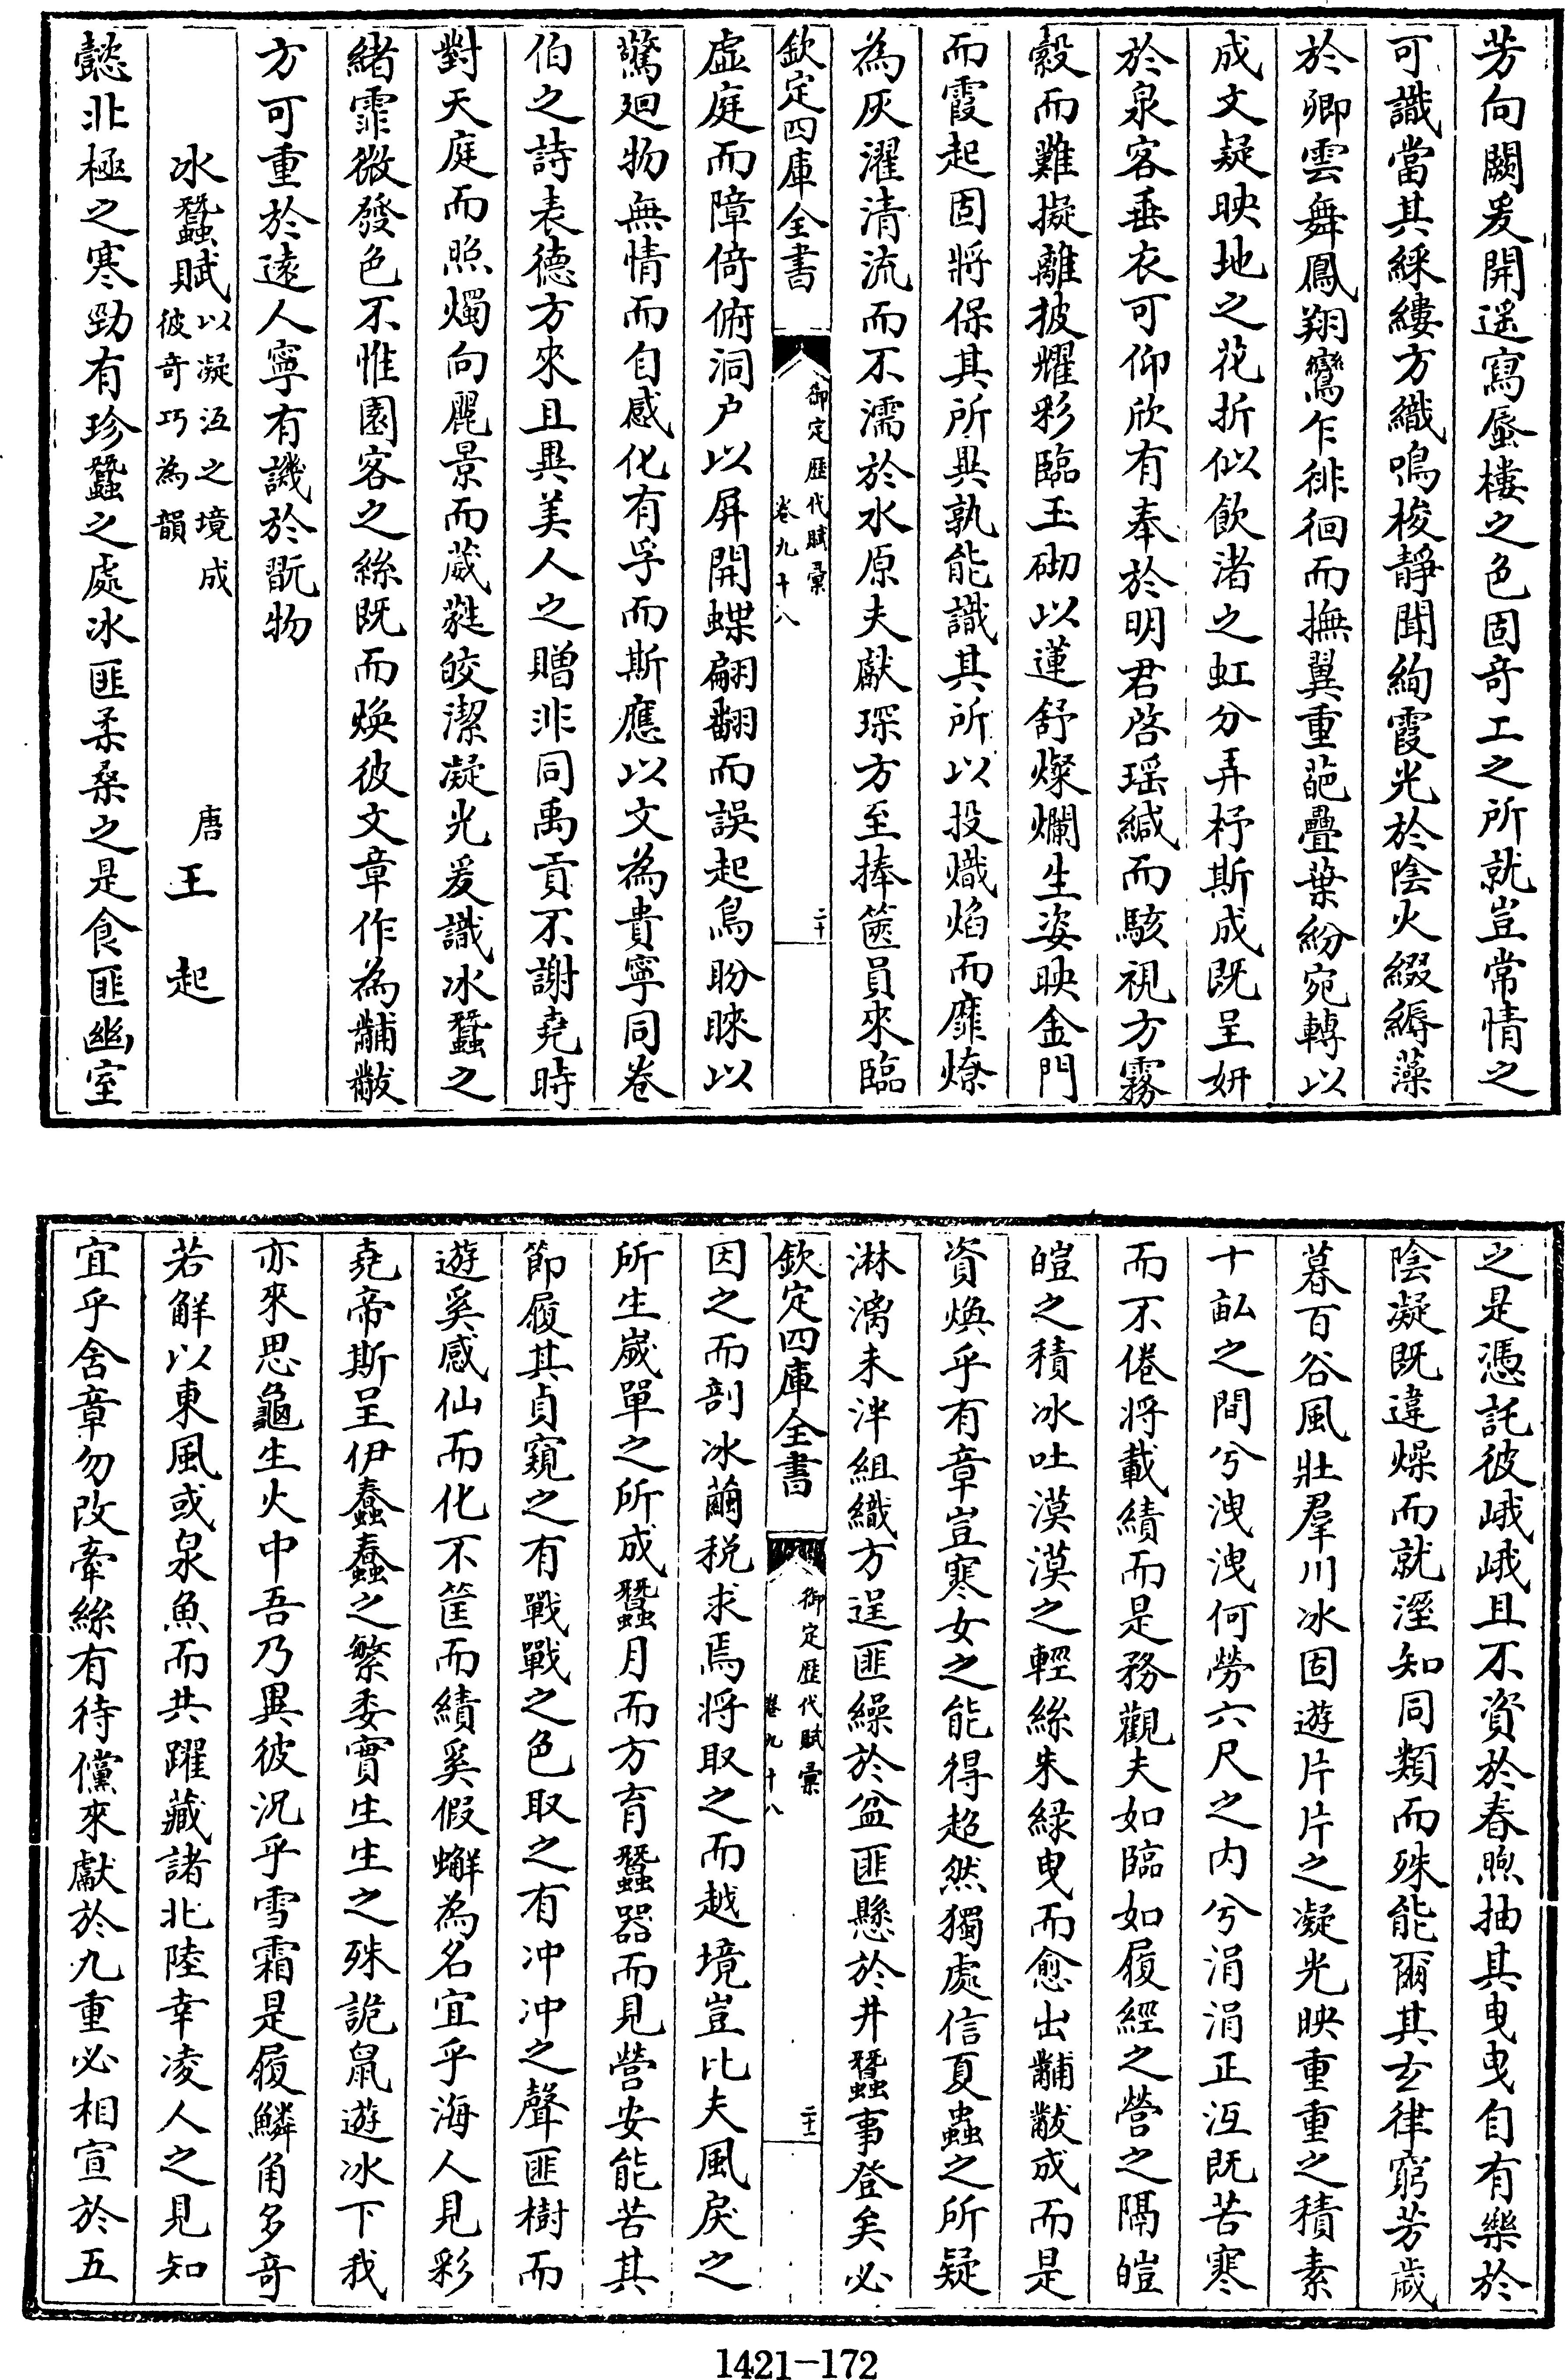 芳向闕爰開遥寫蜃樓之色固奇工之所就豈常情之
可識當其綵縷方織鳴梭靜聞絢霞光於陰火綴縟藻
於卿雲舞鳳翔鸞乍徘徊而撫翼重葩疊葉紛宛轉以
成文疑映地之花折似飲渚之虹分弄杼斯成既呈妍
於泉客垂衣可仰欣有奉於明君啓瑶緘而駭視方霧
縠而難擬離披耀彩臨玉砌以蓮舒燦爛生姿映金門
而霞起固將保其所異孰能識其所以投熾焰而靡燎
為灰濯清流而不濡於水原夫獻琛方至捧篋員來臨
欽定四庫全書
御定歴代賦彙
卷九十八
二十
虚庭而障倚俯洞户以屏開蝶翩翻而誤起鳥盼睞以
驚廻物無情而自感化有孚而斯應以文為貴寧同巻
伯之詩表德方來且異美人之贈非同禹貢不謝堯時
對天庭而照燭向麗景而葳蕤皎潔凝光爰識氷蠶之
緒霏微發色不惟園客之絲既而焕彼文章作為黼黻
方可重於遠人寧有譏於翫物
氷蠶賦以凝沍之境成
彼奇巧為韻
唐王起
懿北極之寒勁有珍蠶之處氷匪柔桑之是食匪幽室
之是憑託彼峨峨且不資於春煦抽其曳曳自有樂於
陰凝既違燥而就溼知同類而殊能爾其玄律窮芳歲
暮百谷風壯羣川氷固遊片片之凝光映重重之積素
十畝之間兮洩洩何勞六尺之内兮涓涓正沍既苦寒
而不倦將載績而是務觀夫如臨如履經之營之隔皚
皚之積氷吐漠漠之輕絲朱緑曳而愈出黼黻成而是
資煥乎有章豈寒女之能得超然獨處信夏蟲之所疑
淋漓未泮組織方逞匪繰於盆匪懸於井蠶事登矣必
欽定四庫全書
御定歴代賦彙
卷九十八
二十一
因之而剖氷繭税求焉將取之而越境豈比夫風戾之
所生嵗單之所成蠶月而方育蠶器而見營安能苦其
節履其貞窺之有戰戰之色取之有冲冲之聲匪樹而
遊奚感仙而化不筐而績奚假蠏為名宜乎海人見彩
堯帝斯呈伊蠢蠢之繁委實生生之殊詭鼠遊氷下我
亦來思龜生火中吾乃異彼況乎雪霜是履鱗角多奇
若解以東風或泉魚而共躍藏諸北陸幸凌人之見知
宜乎舍章勿改牽絲有待儻來獻於九重必相宣於五
1421-172